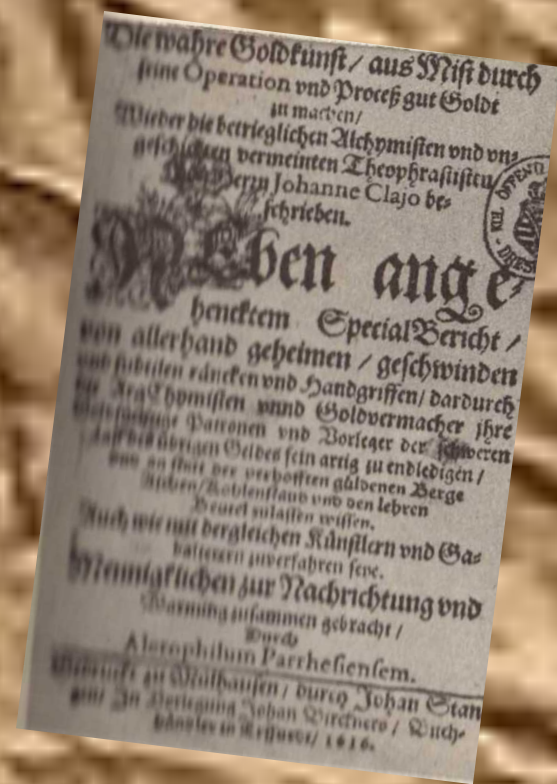 Die wahre Goldkunst / aus Mist durch
seine Operation vnd Proceß gut Goldt
zu machen /
Wieder die betrieglichen Alchymisten vnd vn-
geschickten vermeinten Theophrasiisten
Herrn Johanne Clajo be-
schrieben.
NEben ange-
hencktem Special Bericht /
von allerhand geheimen / geschwinden
vnd subtilen räncken vnd Handgriffen / dardurch
die ArgChymisten vnnd Goldvermacher jhre
Patronen vnd Vorleger der schweren
Last des übrigen Geldes fein artig zu endledigen /
vnd an statt der verhofften güldenen Berge
Aschen / Kohlenstaub vnd den lehren
Beutel zulassen wissen.
Auch wie mit dergleichen Künstlern vnd Ga-
zuverfahren seye.
Menniglichen zur Nachrichtung vnd
Warnung zusammen gebracht /
Durch
Alerophilum Parrhesiensem.
Gedruckt zu Mülhausen / durch Johan Stan
In Verlegung Johan Birckners / Buch-
händler in Erffurdt / 1616.
ÖFFENTL
BIBL
DRES